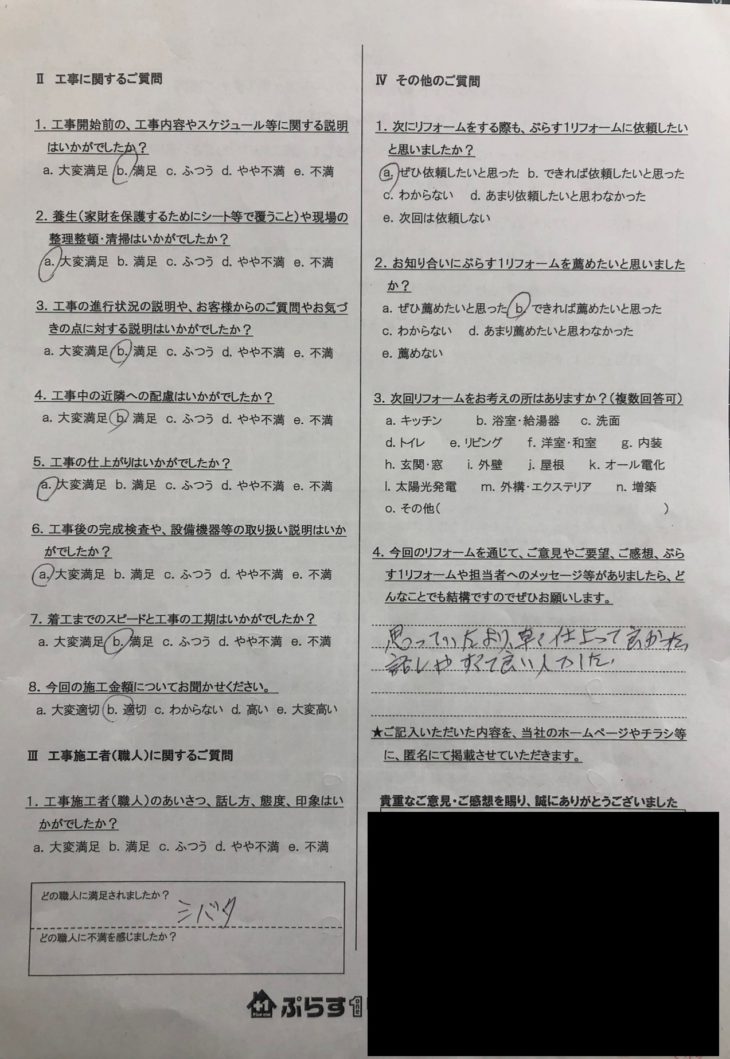 Ⅱ 工事に関するご質問
1. 工事開始前の、工事内容やスケジュール等に関する説明
はいかがでしたか?
a. 大変満足 b. 満足 c. ふつう d. やや不満 e. 不満
2. 養生(家財を保護するためにシート等で覆うこと)や現場の
整理整頓・清掃はいかがでしたか?
a. 大変満足 b. 満足 c. ふつう d. やや不満 e. 不満
3. 工事の進行状況の説明や、お客様からのご質問やお気づ
きの点に対する説明はいかがでしたか?
a. 大変満足 b. 満足 c. ふつう d. やや不満 e. 不満
4. 工事中の近隣への配慮はいかがでしたか?
a. 大変満足 b. 満足 c. ふつう d. やや不満 e. 不満
5. 工事の仕上がりはいかがでしたか?
a. 大変満足 b. 満足 c. ふつう d. やや不満 e. 不満
6. 工事後の完成検査や、設備機器等の取り扱い説明はいか
がでしたか?
a. 大変満足 b. 満足 c. ふつう d. やや不満 e. 不満
7. 着工までのスピードと工事の工期はいかがでしたか?
a. 大変満足 b. 満足 c. ふつう d. やや不満 e. 不満
8. 今回の施工金額についてお聞かせください。
a. 大変適切 b. 適切 c. わからない d. 高い e. 大変高い
Ⅲ 工事施工者(職人)に関するご質問
1. 工事施工者(職人)のあいさつ、話し方、態度、印象はい
かがでしたか?
a. 大変満足 b. 満足 c. ふつう d. やや不満 e. 不満
どの職人に満足されましたか?
シバタ
どの職人に不満を感じましたか?
Ⅳ その他のご質問
1. 次にリフォームをする際も、ぷらす1リフォームに依頼したい
と思いましたか?
a. ぜひ依頼したいと思った b. できれば依頼したいと思った
c. わからない d. あまり依頼したいと思わなかった
e. 次回は依頼しない
2. お知り合いにぷらす1リフォームを薦めたいと思いました
か?
a. ぜひ薦めたいと思った b. できれば薦めたいと思った
c. わからない d. あまり薦めたいと思わなかった
e. 薦めない
3. 次回リフォームをお考えの所はありますか?(複数回答可)
a. キッチン b. 浴室・給湯器 c. 洗面
d. トイレ e. リビング f. 洋室・和室 g. 内装
h. 玄関・窓 i. 外壁 j. 屋根 k. オール電化
l. 太陽光発電 m. 外構・エクステリア n. 増築
o. その他( )
4. 今回のリフォームを通じて、ご意見やご要望、ご感想、ぷら
す1リフォームや担当者へのメッセージ等がありましたら、ど
んなことでも結構ですのでぜひお願いします。
思っていたより、早く仕上って良かった、
話しやすくて良い人でした。
★ご記入いただいた内容を、当社のホームページやチラシ等
に、匿名にて掲載させていただきます。
貴重なご意見・ご感想を賜り、誠にありがとうございました
+1 ぷらす1 one